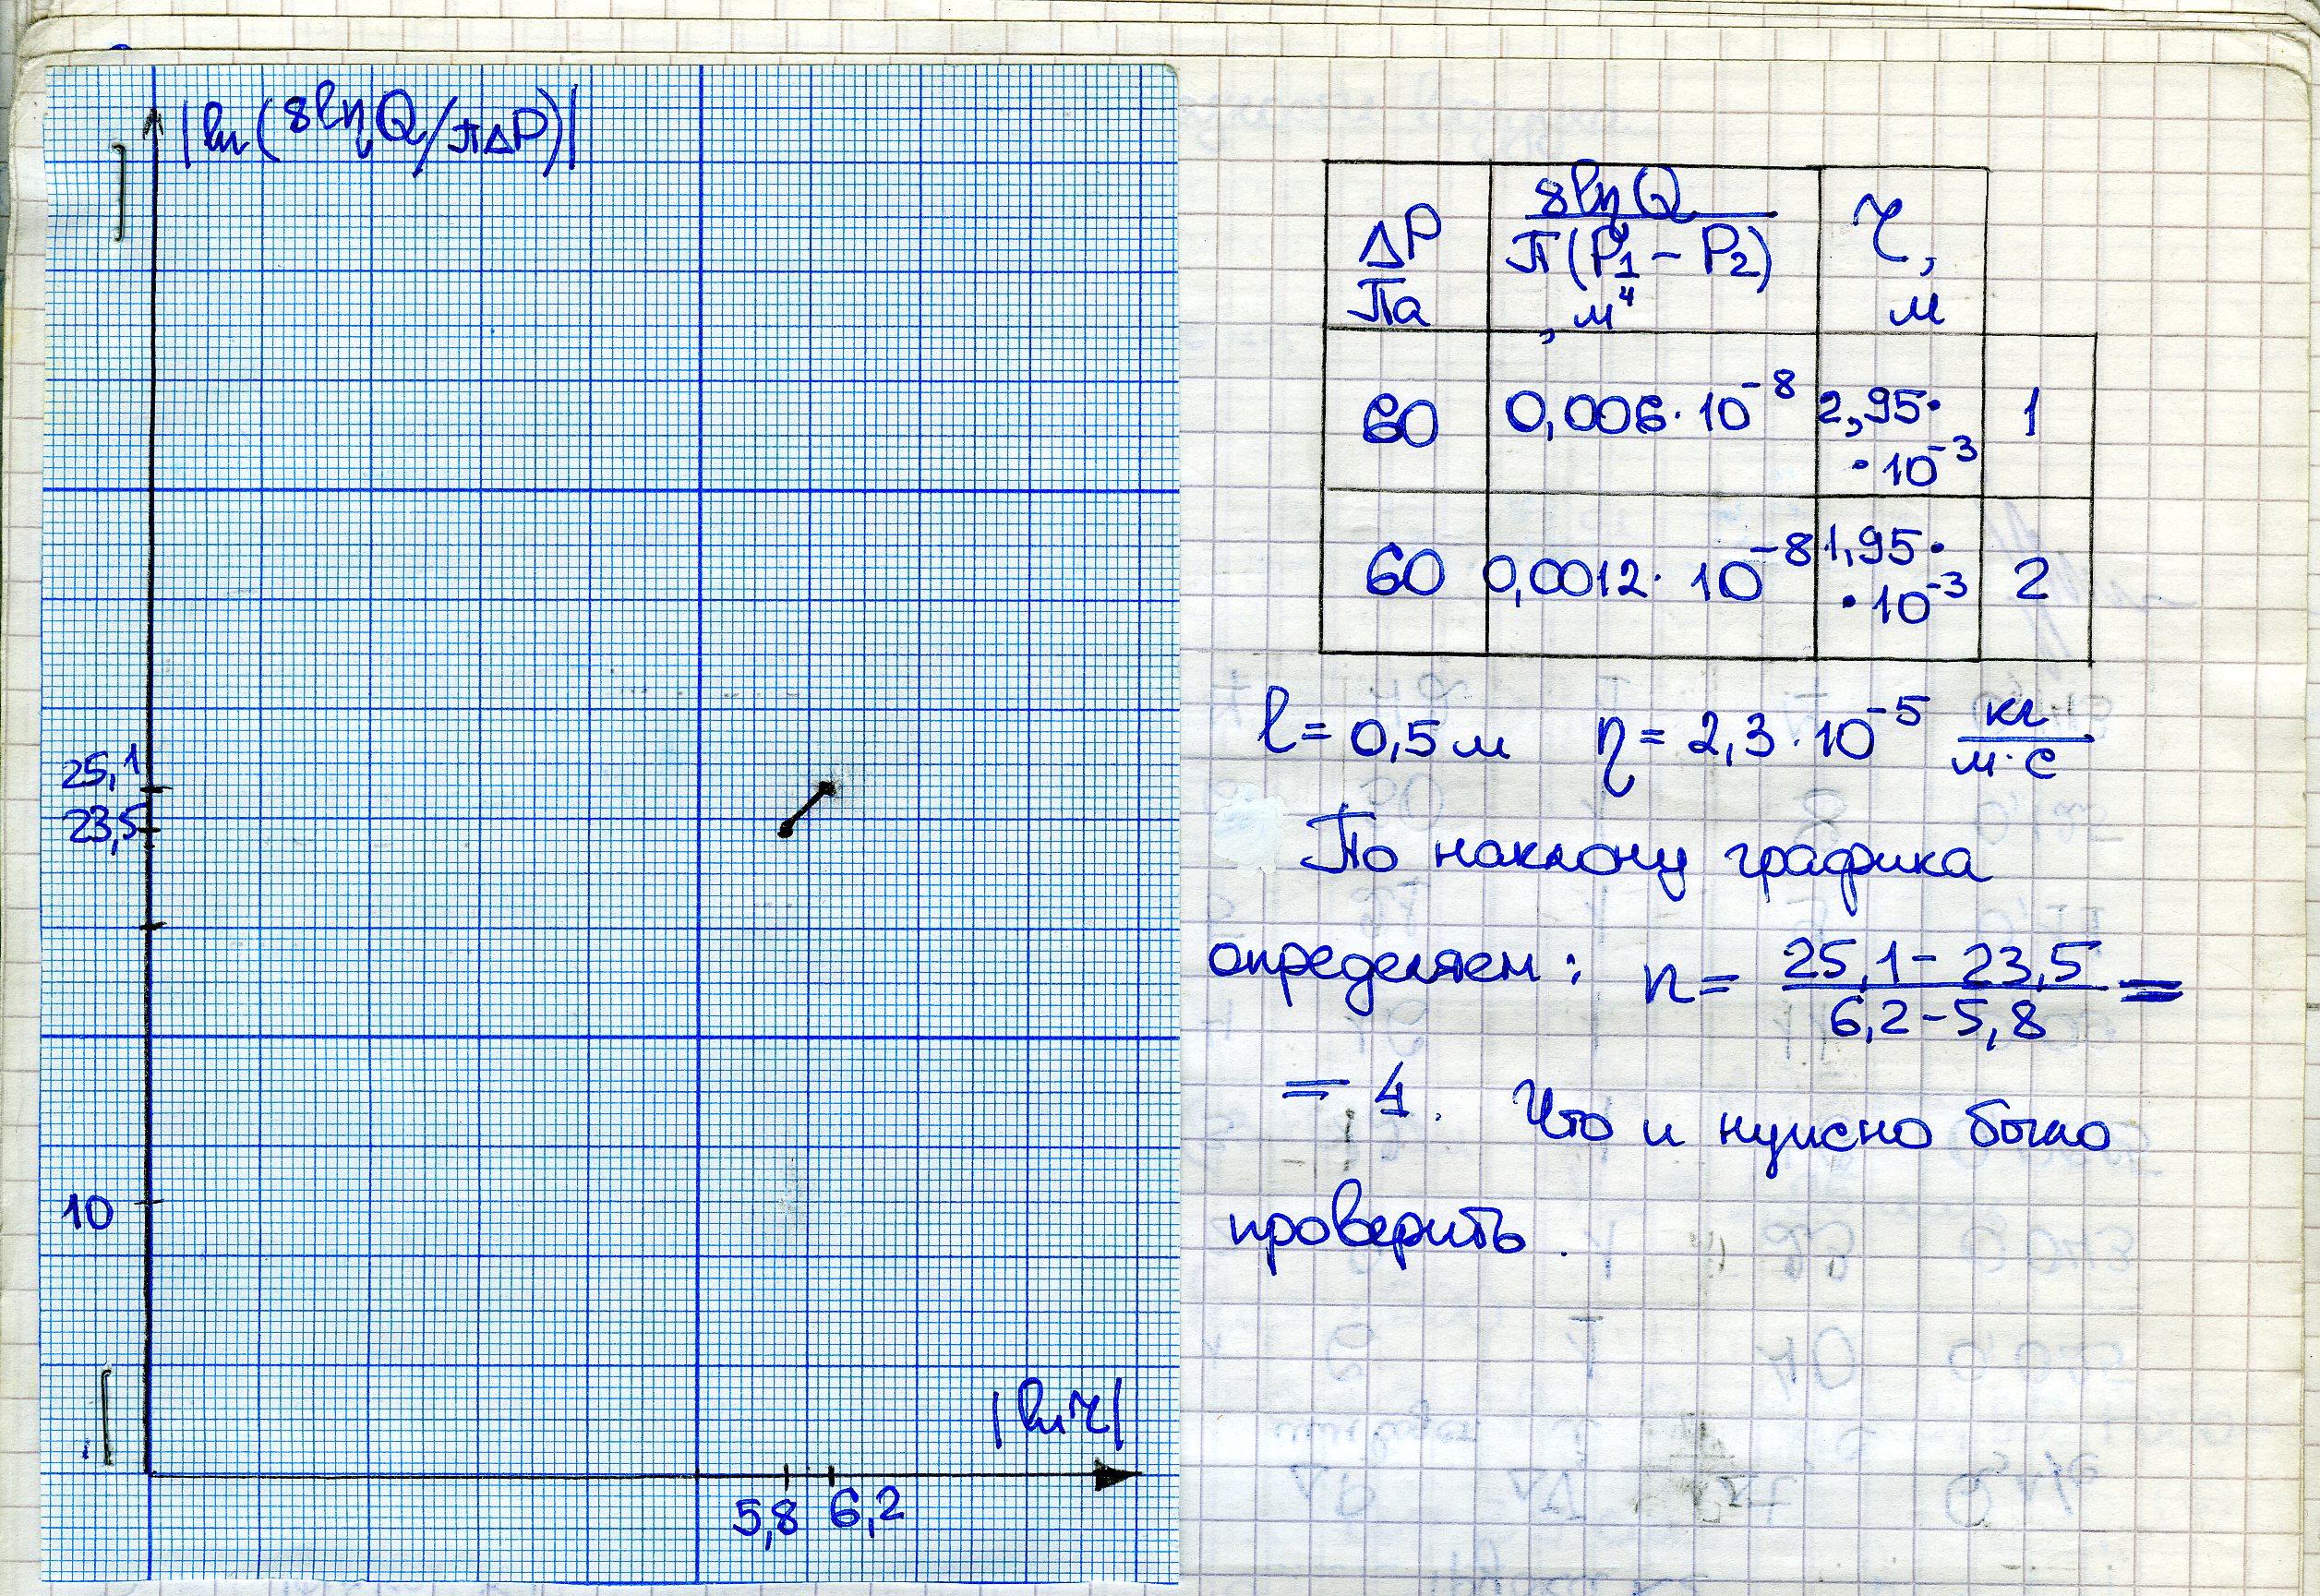 |ln(8lηQ/πΔP)|
25,1
23,5
10
|ln r|
5,8 6,2
ΔP Па
8lηQ / π(P1 - P2) , м⁴
r, м
60 0,006·10⁻⁸ 2,95· ·10⁻³ 1
60 0,0012·10⁻⁸ 1,95· ·10⁻³ 2
l = 0,5 м η = 2,3·10⁻⁵ кг/м·с
По наклону графика
определяем: n = 25,1 - 23,5 / 6,2 - 5,8 =
= 4. Что и нужно было
проверить.